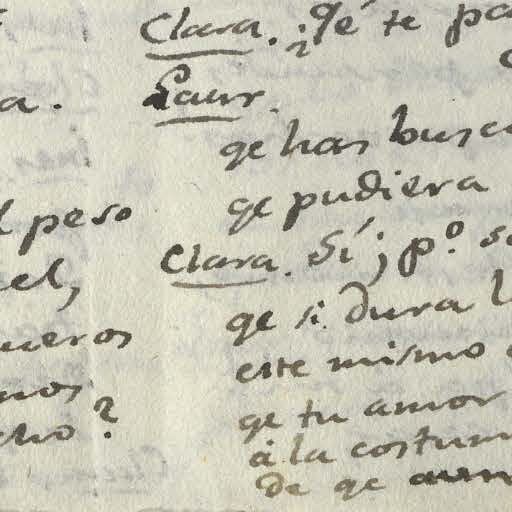 a.
peso
el,
ueros
mos
cho?
Clara. ¿Qé te pa
Laur.
qe has busc
qe pudiera
Clara. Sí; pº. se
qe si dura l
este mismo
qe tu amor
á la costum
de qe aun